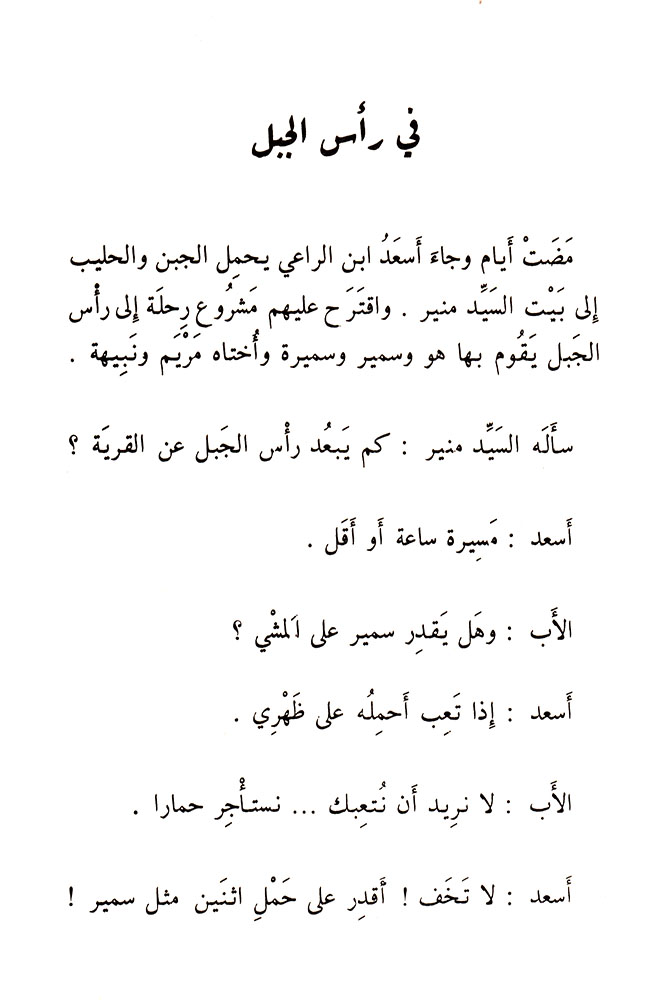 في رأس الجبل
مَضَتْ أَيام وجاءَ أَسعَدُ ابن الراعي يحمِل الجبن والحليب
إِلى بَيْت السَيِّد منير . واقتَرَح عليهم مَشرُوع رِحلَة إِلى رأْس
الجَبل يَقُوم بها هو وسمير وسميرة وأُختاه مَرْيَم ونَبِيهة .
سأَلَه السَيِّد منير : كم يَبعُد رأْس الجَبل عن القريَة ؟
أَسعد : مَسِيرة ساعة أَو أَقَل .
الأَب : وهَل يَقدِر سمير على المَشْي ؟
أَسعد : إِذا تَعِب أَحمِلُه على ظَهْرِي .
الأَب : لا نرِيد أَن نُتعِبك ... نستأْجِر حمارا .
أَسعد : لا تَخَف ! أَقدِر على حَمْلِ اثنَين مثل سمير !